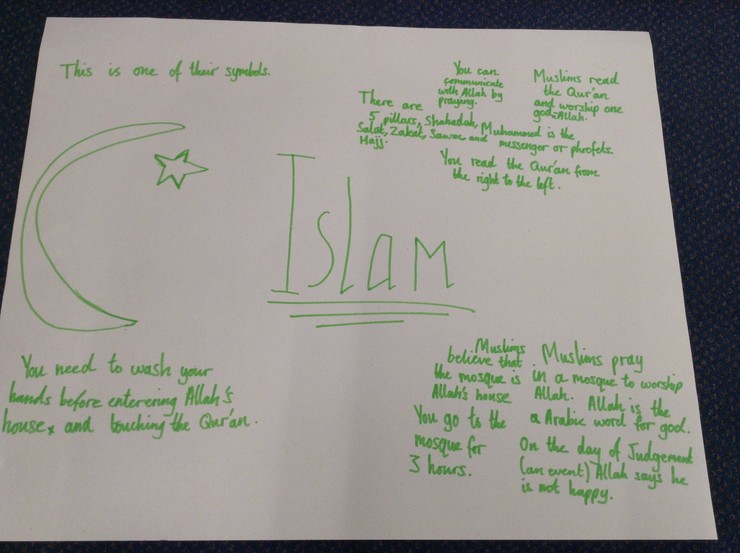 This is one of their symbols.
You can
communicate
with Allah by
praying.
Muslims read
the Qur'an
and worship one
god-Allah.
There are
5 pillars, Shahadah,
Salat, Zakat, Sawm and
Hajj.
Muhammed is the
messenger or phrofets.
You read the Qur'an from
the right to the left.
Islam
You need to wash your
hands before enterering Allah's
house, and touching the Qur'an.
Muslims
believe that
the mosque is
Allah's house
You go to the
mosque for
3 hours.
Muslims pray
in a mosque to worship
Allah. Allah is the
a Arabic word for god.
On the day of Judgement
(an event) Allah says he
is not happy.